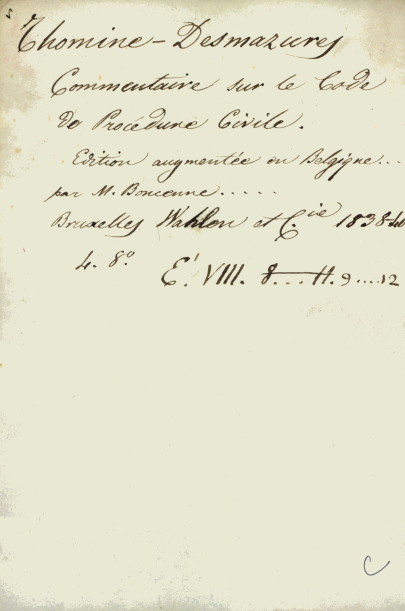 Thomine-Desmazures
Commentaire sur le Code
de Procédure Civile.
Edition augmentée en Belgique...
par M. Boncenne.....
Bruxelles Wahlen et C.ie 1838-40
4. 8º
E' VIII. 8...11. 9....12
C